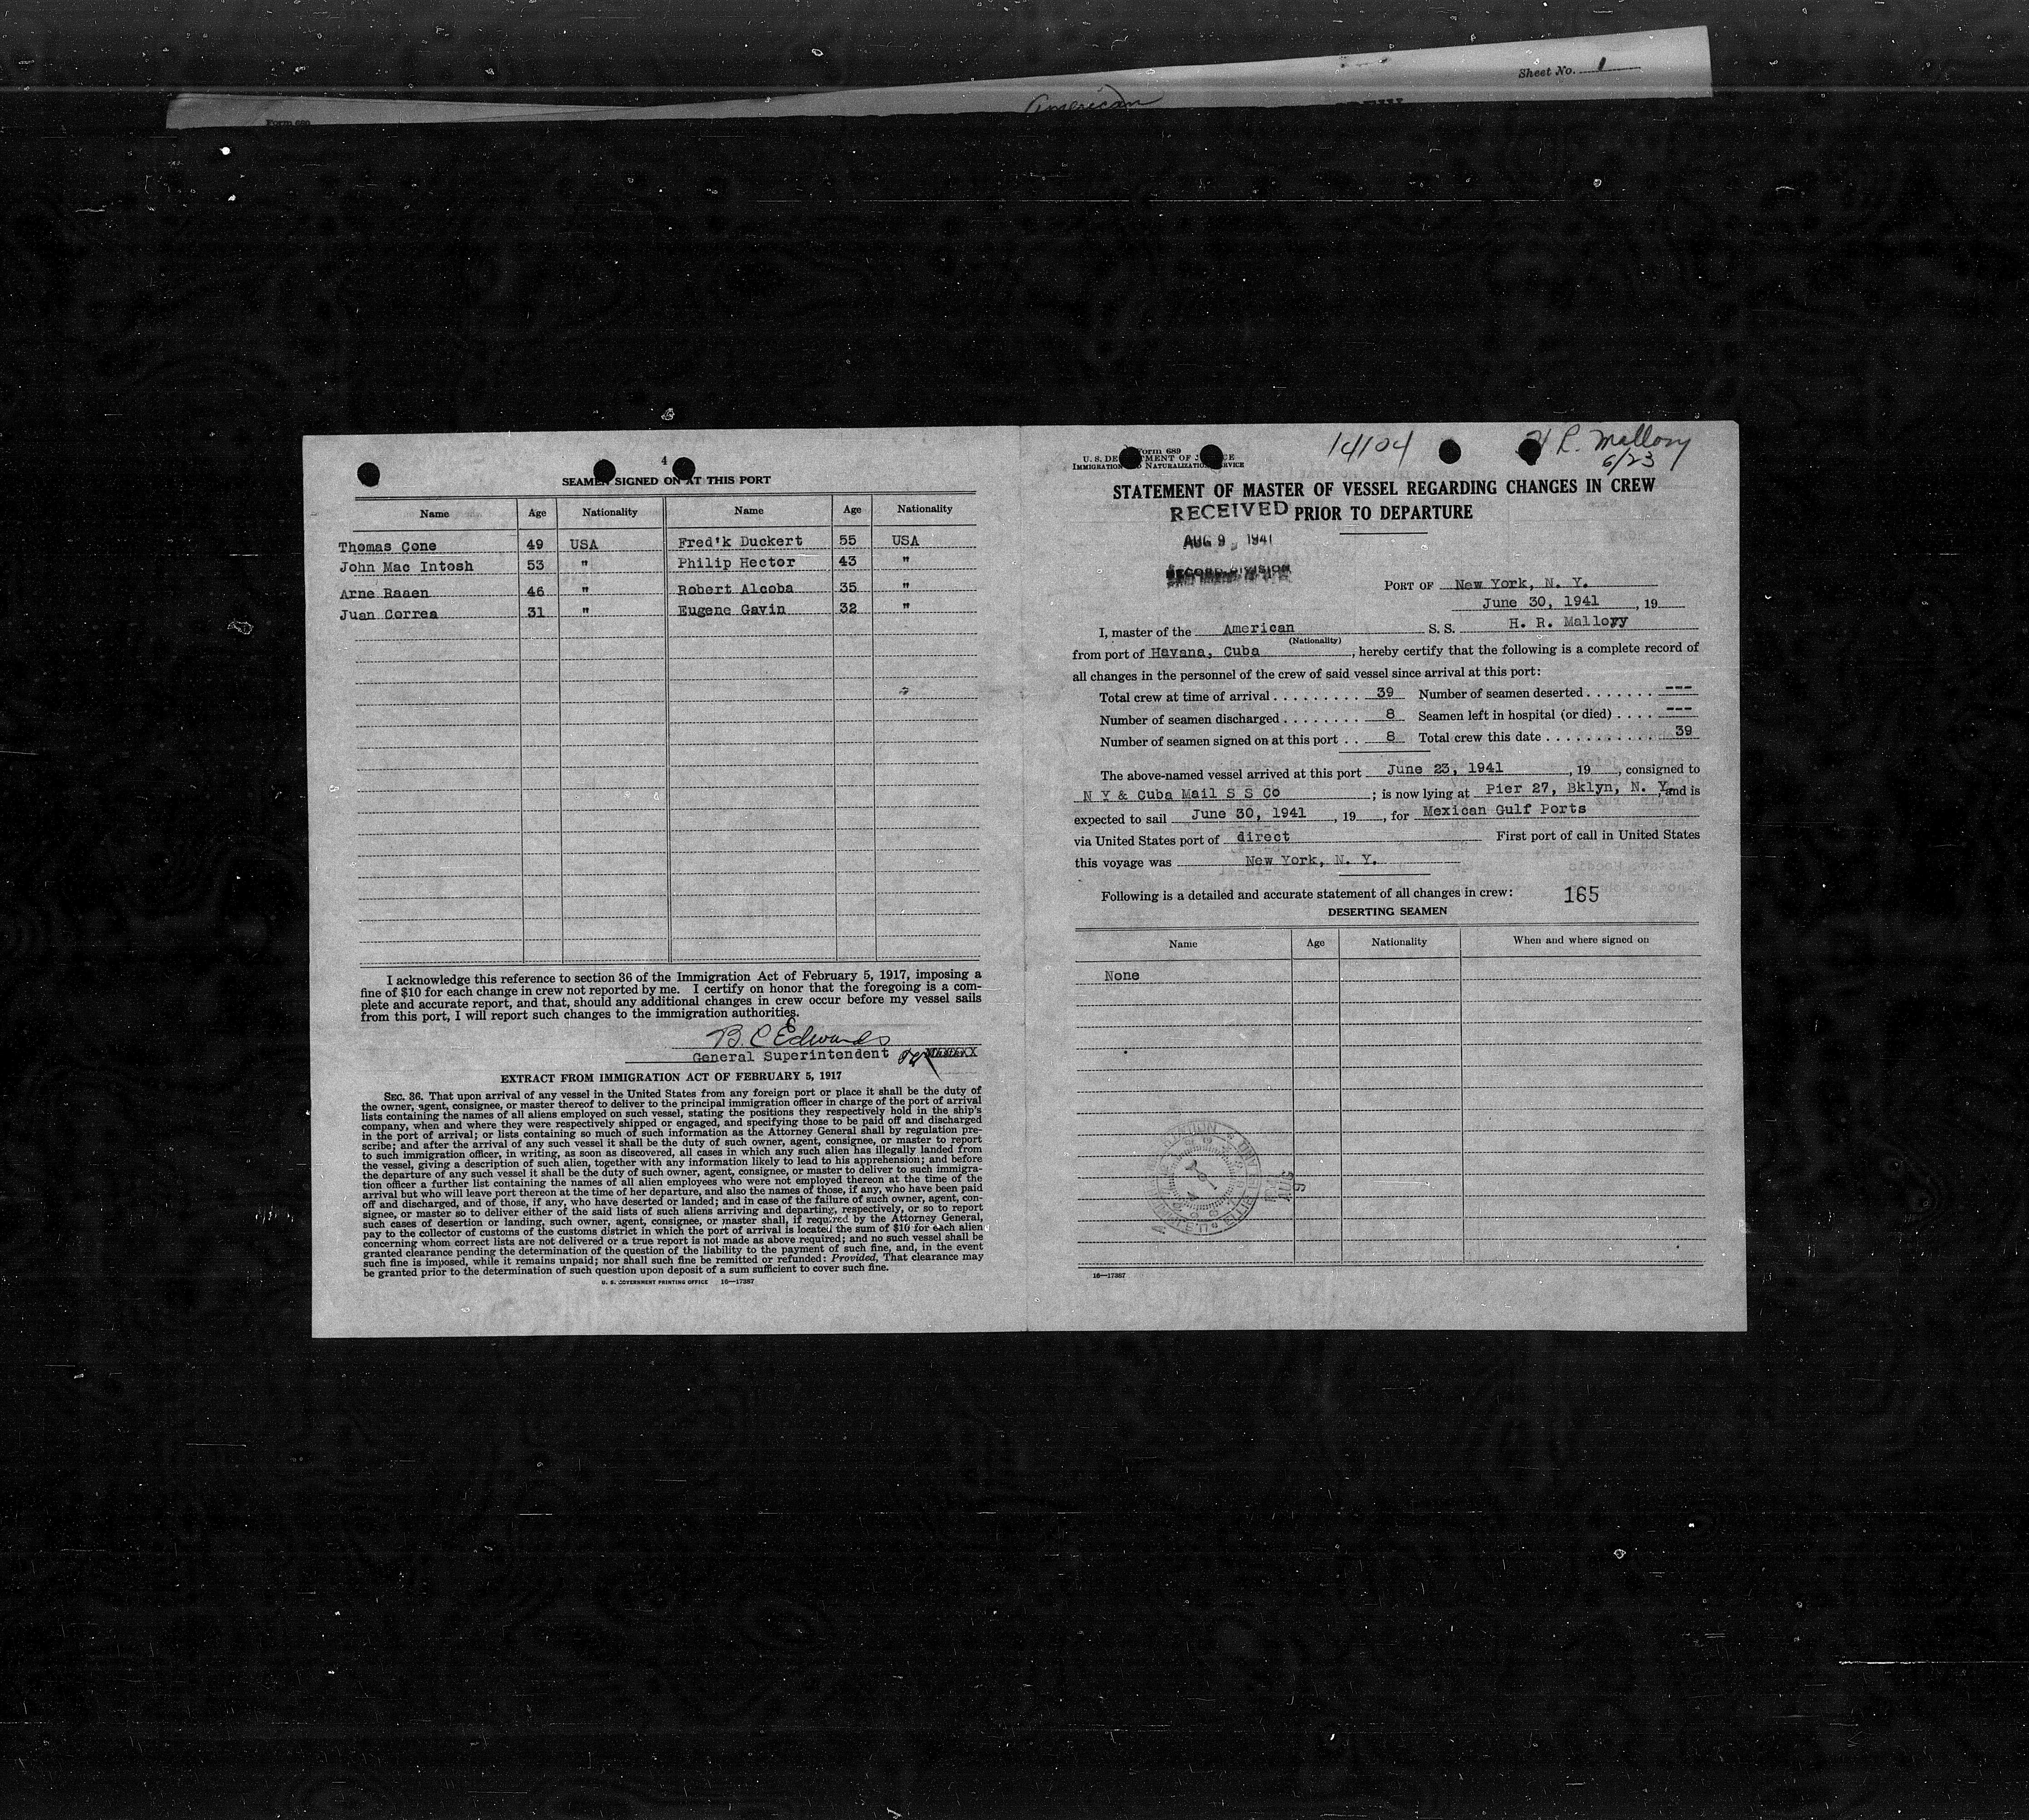 Sheet No. 1
American
Form 689
4
SEAMEN SIGNED ON AT THIS PORT
Name Age Nationality Name Age Nationality
Thomas Cone 49 USA Fred'k Duckert 55 USA
John Mac Intosh 53 " Philip Hector 43 "
Arne Raaen 46 " Robert Alcoba 35 "
Juan Correa 31 " Eugene Gavin 32 "
I acknowledge this reference to section 36 of the Immigration Act of February 5, 1917, imposing a
fine of $10 for each change in crew not reported by me. I certify on honor that the foregoing is a com-
plete and accurate report, and that, should any additional changes in crew occur before my vessel sails
from this port, I will report such changes to the immigration authorities.
B. C Edwards
General Superintendent
EXTRACT FROM IMMIGRATION ACT OF FEBRUARY 5, 1917
SEC. 36. That upon arrival of any vessel in the United States from any foreign port or place it shall be the duty of
the owner, agent, consignee, or master thereof to deliver to the principal immigration officer in charge of the port of arrival
lists containing the names of all aliens employed on such vessel, stating the positions they respectively hold in the ship's
company, when and where they were respectively shipped or engaged, and specifying those to be paid off and discharged
in the port of arrival; or lists containing so much of such information as the Attorney General shall by regulation pre-
scribe; and after the arrival of any such vessel it shall be the duty of such owner, agent, consignee, or master to report
to such immigration officer, in writing, as soon as discovered, all cases in which any such alien has illegally landed from
the vessel, giving a description of such alien, together with any information likely to lead to his apprehension; and before
the departure of any such vessel it shall be the duty of such owner, agent, consignee, or master to deliver to such immigra-
tion officer a further list containing the names of all alien employees who were not employed thereon at the time of the
arrival but who will leave port thereon at the time of her departure, and also the names of those, if any, who have been paid
off and discharged, and of those, if any, who have deserted or landed; and in case of the failure of such owner, agent, con-
signee, or master so to deliver either of the said lists of such aliens arriving and departing, respectively, or so to report
such cases of desertion or landing, such owner, agent, consignee, or master shall, if required by the Attorney General,
pay to the collector of customs of the customs district in which the port of arrival is located the sum of $10 for each alien
concerning whom correct lists are not delivered or a true report is not made as above required; and no such vessel shall be
granted clearance pending the determination of the question of the liability to the payment of such fine, and, in the event
such fine is imposed, while it remains unpaid; nor shall such fine be remitted or refunded: Provided, That clearance may
be granted prior to the determination of such question upon deposit of a sum sufficient to cover such fine.
U. S. GOVERNMENT PRINTING OFFICE 16—17387
Form 689
U. S. DEPARTMENT OF JUSTICE
IMMIGRATION AND NATURALIZATION SERVICE
14104
H R. Mallory
6/23
STATEMENT OF MASTER OF VESSEL REGARDING CHANGES IN CREW
PRIOR TO DEPARTURE
RECEIVED
AUG 9, 1941
RECORD DIVISION
PORT OF New York, N. Y.
June 30, 1941, 19
I, master of the American S. S. H. R. Mallory
(Nationality)
from port of Havana, Cuba, hereby certify that the following is a complete record of
all changes in the personnel of the crew of said vessel since arrival at this port:
Total crew at time of arrival . . . . . . . . . 39 Number of seamen deserted . . . . . . . ---
Number of seamen discharged . . . . . . . . 8 Seamen left in hospital (or died) . . . . ---
Number of seamen signed on at this port . . 8 Total crew this date . . . . . . . . . . . 39
The above-named vessel arrived at this port June 23, 1941, 19, consigned to
N Y & Cuba Mail S S Co; is now lying at Pier 27, Bklyn, N. Y. and is
expected to sail June 30, 1941, 19, for Mexican Gulf Ports
via United States port of direct First port of call in United States
this voyage was New York, N. Y.
Following is a detailed and accurate statement of all changes in crew: 165
DESERTING SEAMEN
Name Age Nationality When and where signed on
None
16—17387